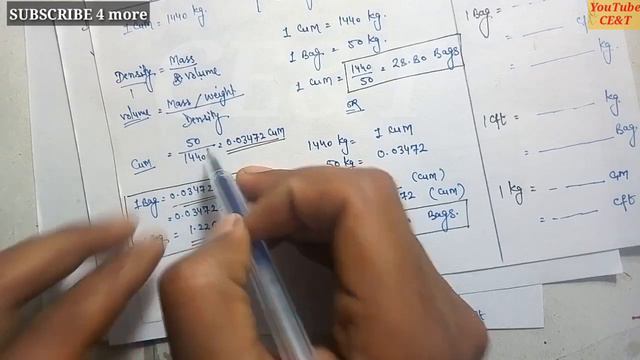 SUBSCRIBE 4 more
YouTube
CE&T
1 CUM = 1440 kg.
Density = Mass
volume
volume = Mass / Weight
Density
Cum = 50
1440 = 0.03472 CUM
1 Bag = 0.03472
= 0.03472
= 1.22
1 CUM = 1440 kg.
1 Bag = 50 kg.
1 CUM = 1440
50 = 28.80 Bags
OR
1440 kg = 1 CUM
50 kg = 0.03472
(CUM)
72 (CUM)
Bags.
1 Bag =
cft
kg.
1 cft =
Bag.
1 kg =
CUM
cft